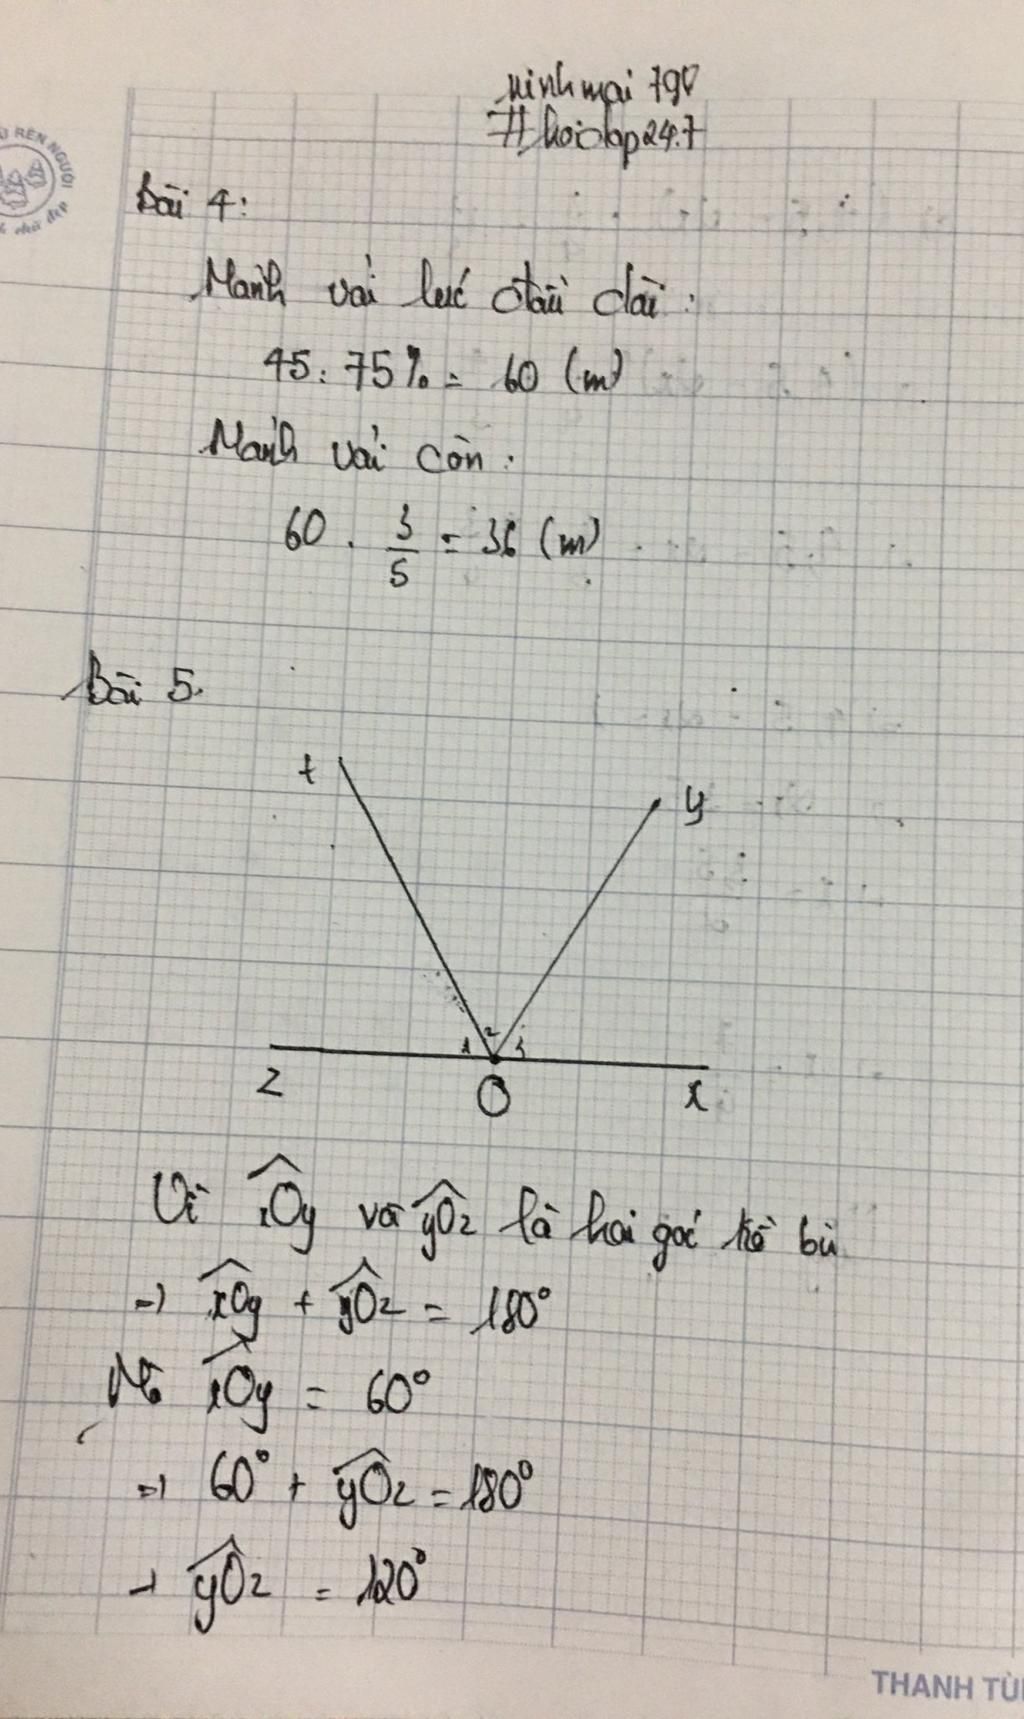 ninhmai 790
#hoidap24.7
ÀI RÈN NGƯỜI
chữ đẹp
Bài 4:
Mảnh vải lúc đầu dài:
45: 75% = 60 (m)
Mảnh vải còn:
60 . 3/5 = 36 (m)
Bài 5.
t
y
1 2 3
z
O
x
Vì xOy và yOz là hai góc kề bù
=> xOy + yOz = 180°
Mà xOy = 60°
=> 60° + yOz = 180°
=> yOz = 120°
THANH TÙ